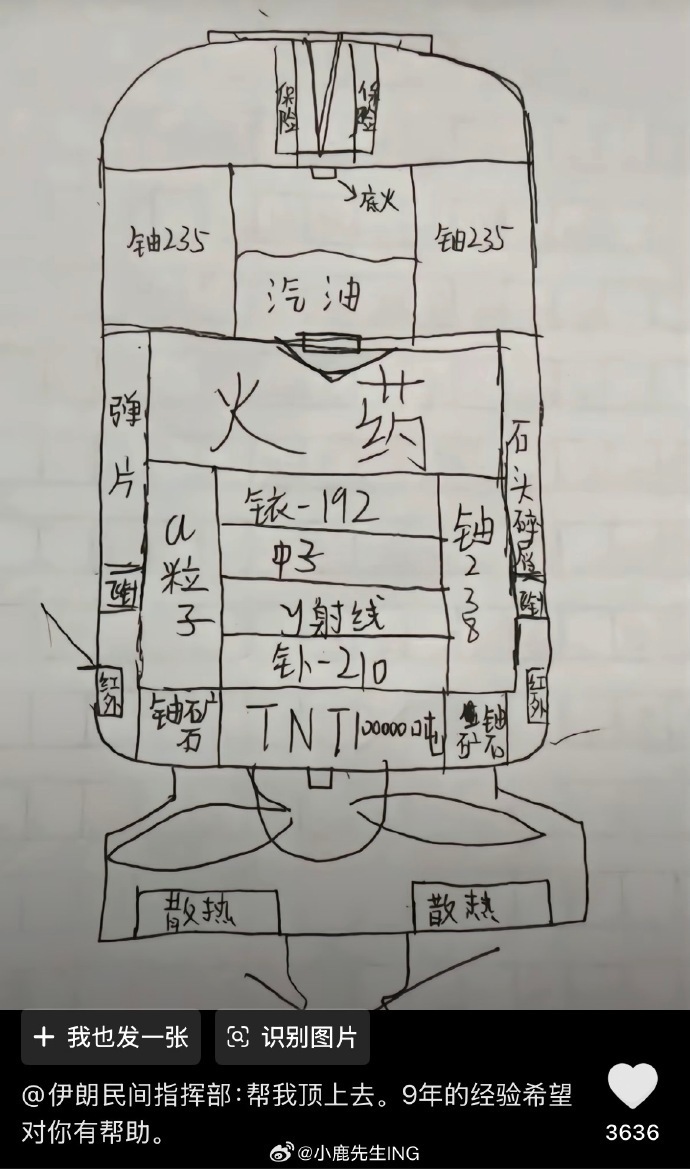 保险
保险
底火
铀235
铀235
汽油
火药
弹片
石头碎屑
a粒子
铱-192
中子
y射线
钋-210
铀238
雷达
雷达
红外
红外
铀矿石
TNT100000吨
铀矿石
散热
散热
+ 我也发一张
识别图片
@伊朗民间指挥部:帮我顶上去。9年的经验希望
对你有帮助。
3636
@小鹿先生ING